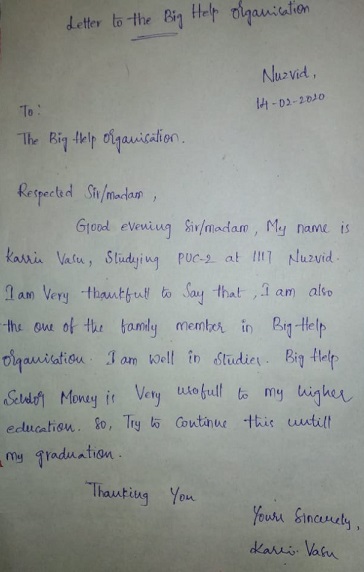 Letter to the Big Help Organisation
Nuzvid,
14-02-2020
To:
The Big Help Organisation.
Respected Sir/madam,
Good evening Sir/madam, My name is
Karri Vasu, Studying PUC-2 at IIIT Nuzvid.
I am Very thankfull to Say that, I am also
the one of the family member in Big Help
Organisation. I am well in Studies. Big Help
Money is Very usefull to my higher
education. So, Try to Continue this untill
my graduation.
Thanking You
Yours Sincerely,
Karri Vasu